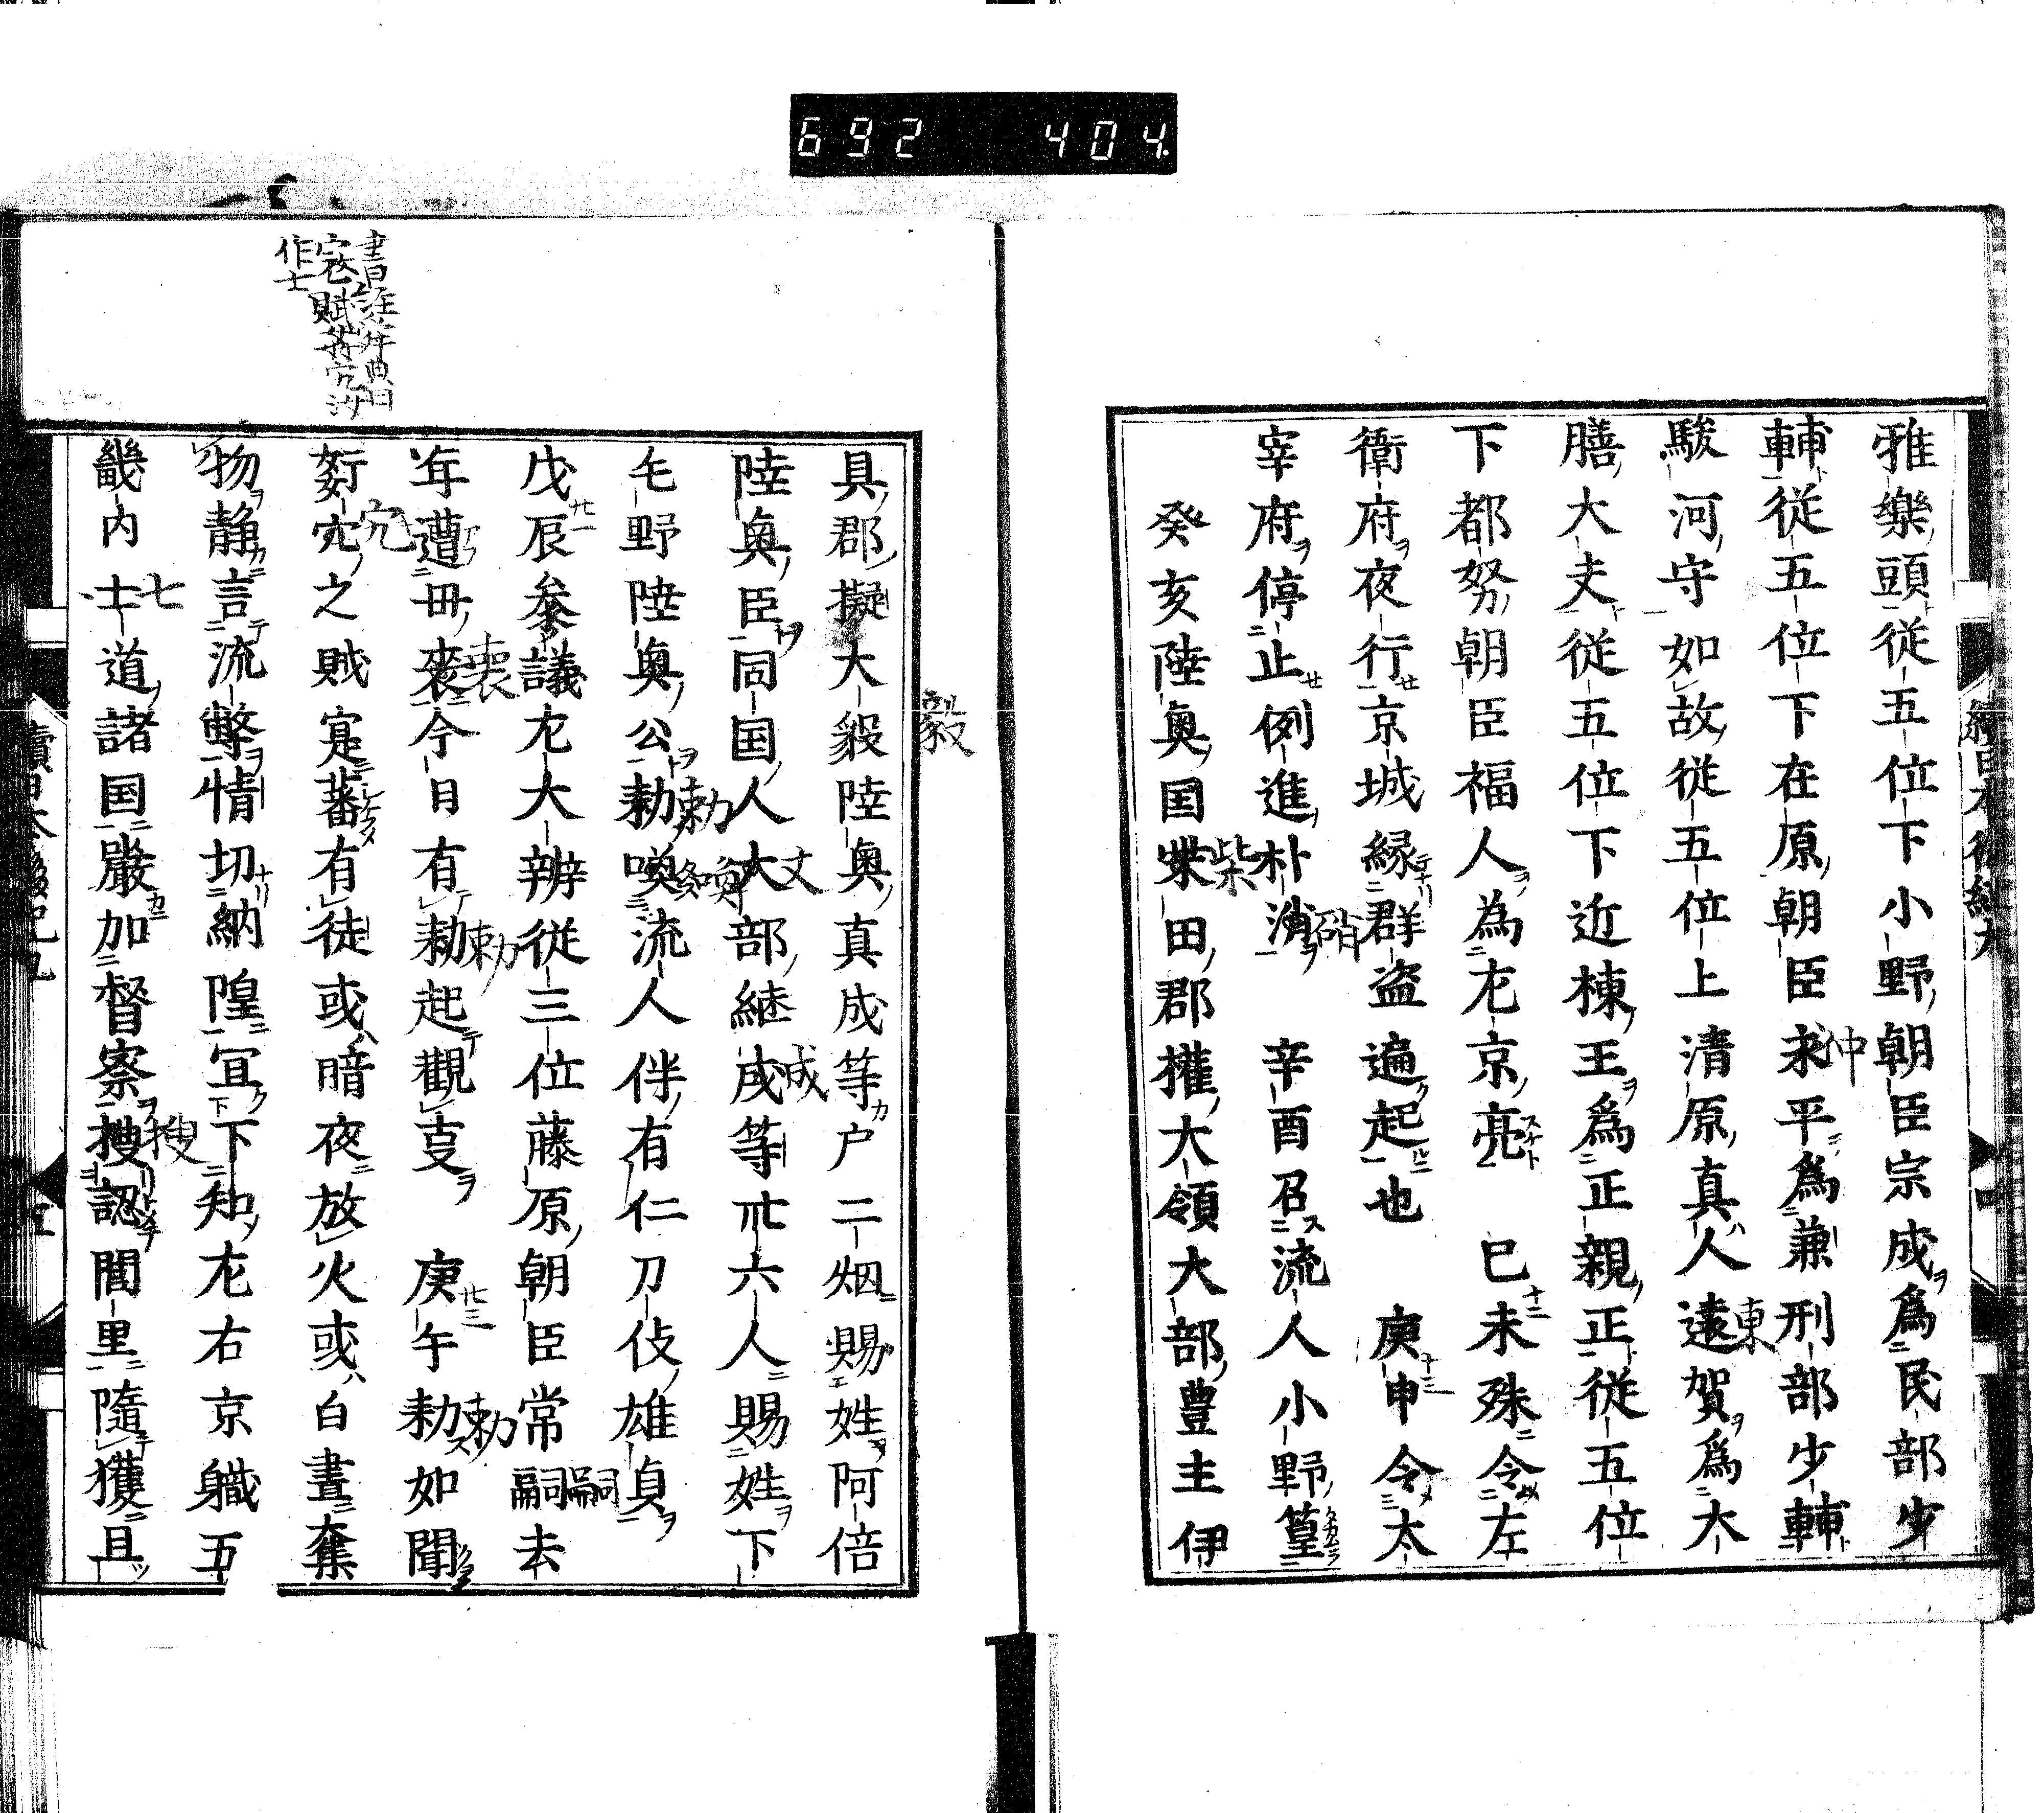 692 404
雅樂頭従五位下小野朝臣宗成爲民部少
輔従五位下在原朝臣求平爲兼刑部少輔
仲
駿河守如故従五位上清原真人遠賀爲大
東
膳大夫従五位下近棟王爲正親正従五位
下都努朝臣福人為左京亮 己未殊令左
衛府夜行京城縁群盗遍起也 庚申令太
宰府停止例進朴消 辛酉召流人小野篁
硝
癸亥陸奥国柴田郡權大領大部豊主伊
柴
具郡擬大毅陸奥真成等户二烟賜姓阿倍
毅
陸奥臣同国人大部継成等卅六人賜姓下
丈
成
毛野陸奥公勅喚流人伴有仁刀伎雄貞
勅
戊辰参議左大辨従三位藤原朝臣常嗣去
嗣
年遭毋喪今日有勅起觀事 庚午勅如聞
喪
勅
勅
姧宄之賊寔蕃有徒或暗夜放火或白晝奪
宄
物静言流弊情切納隍宜下知左右京職五
畿内士道諸国嚴加督察搜認閭里隨獲且
七
搜